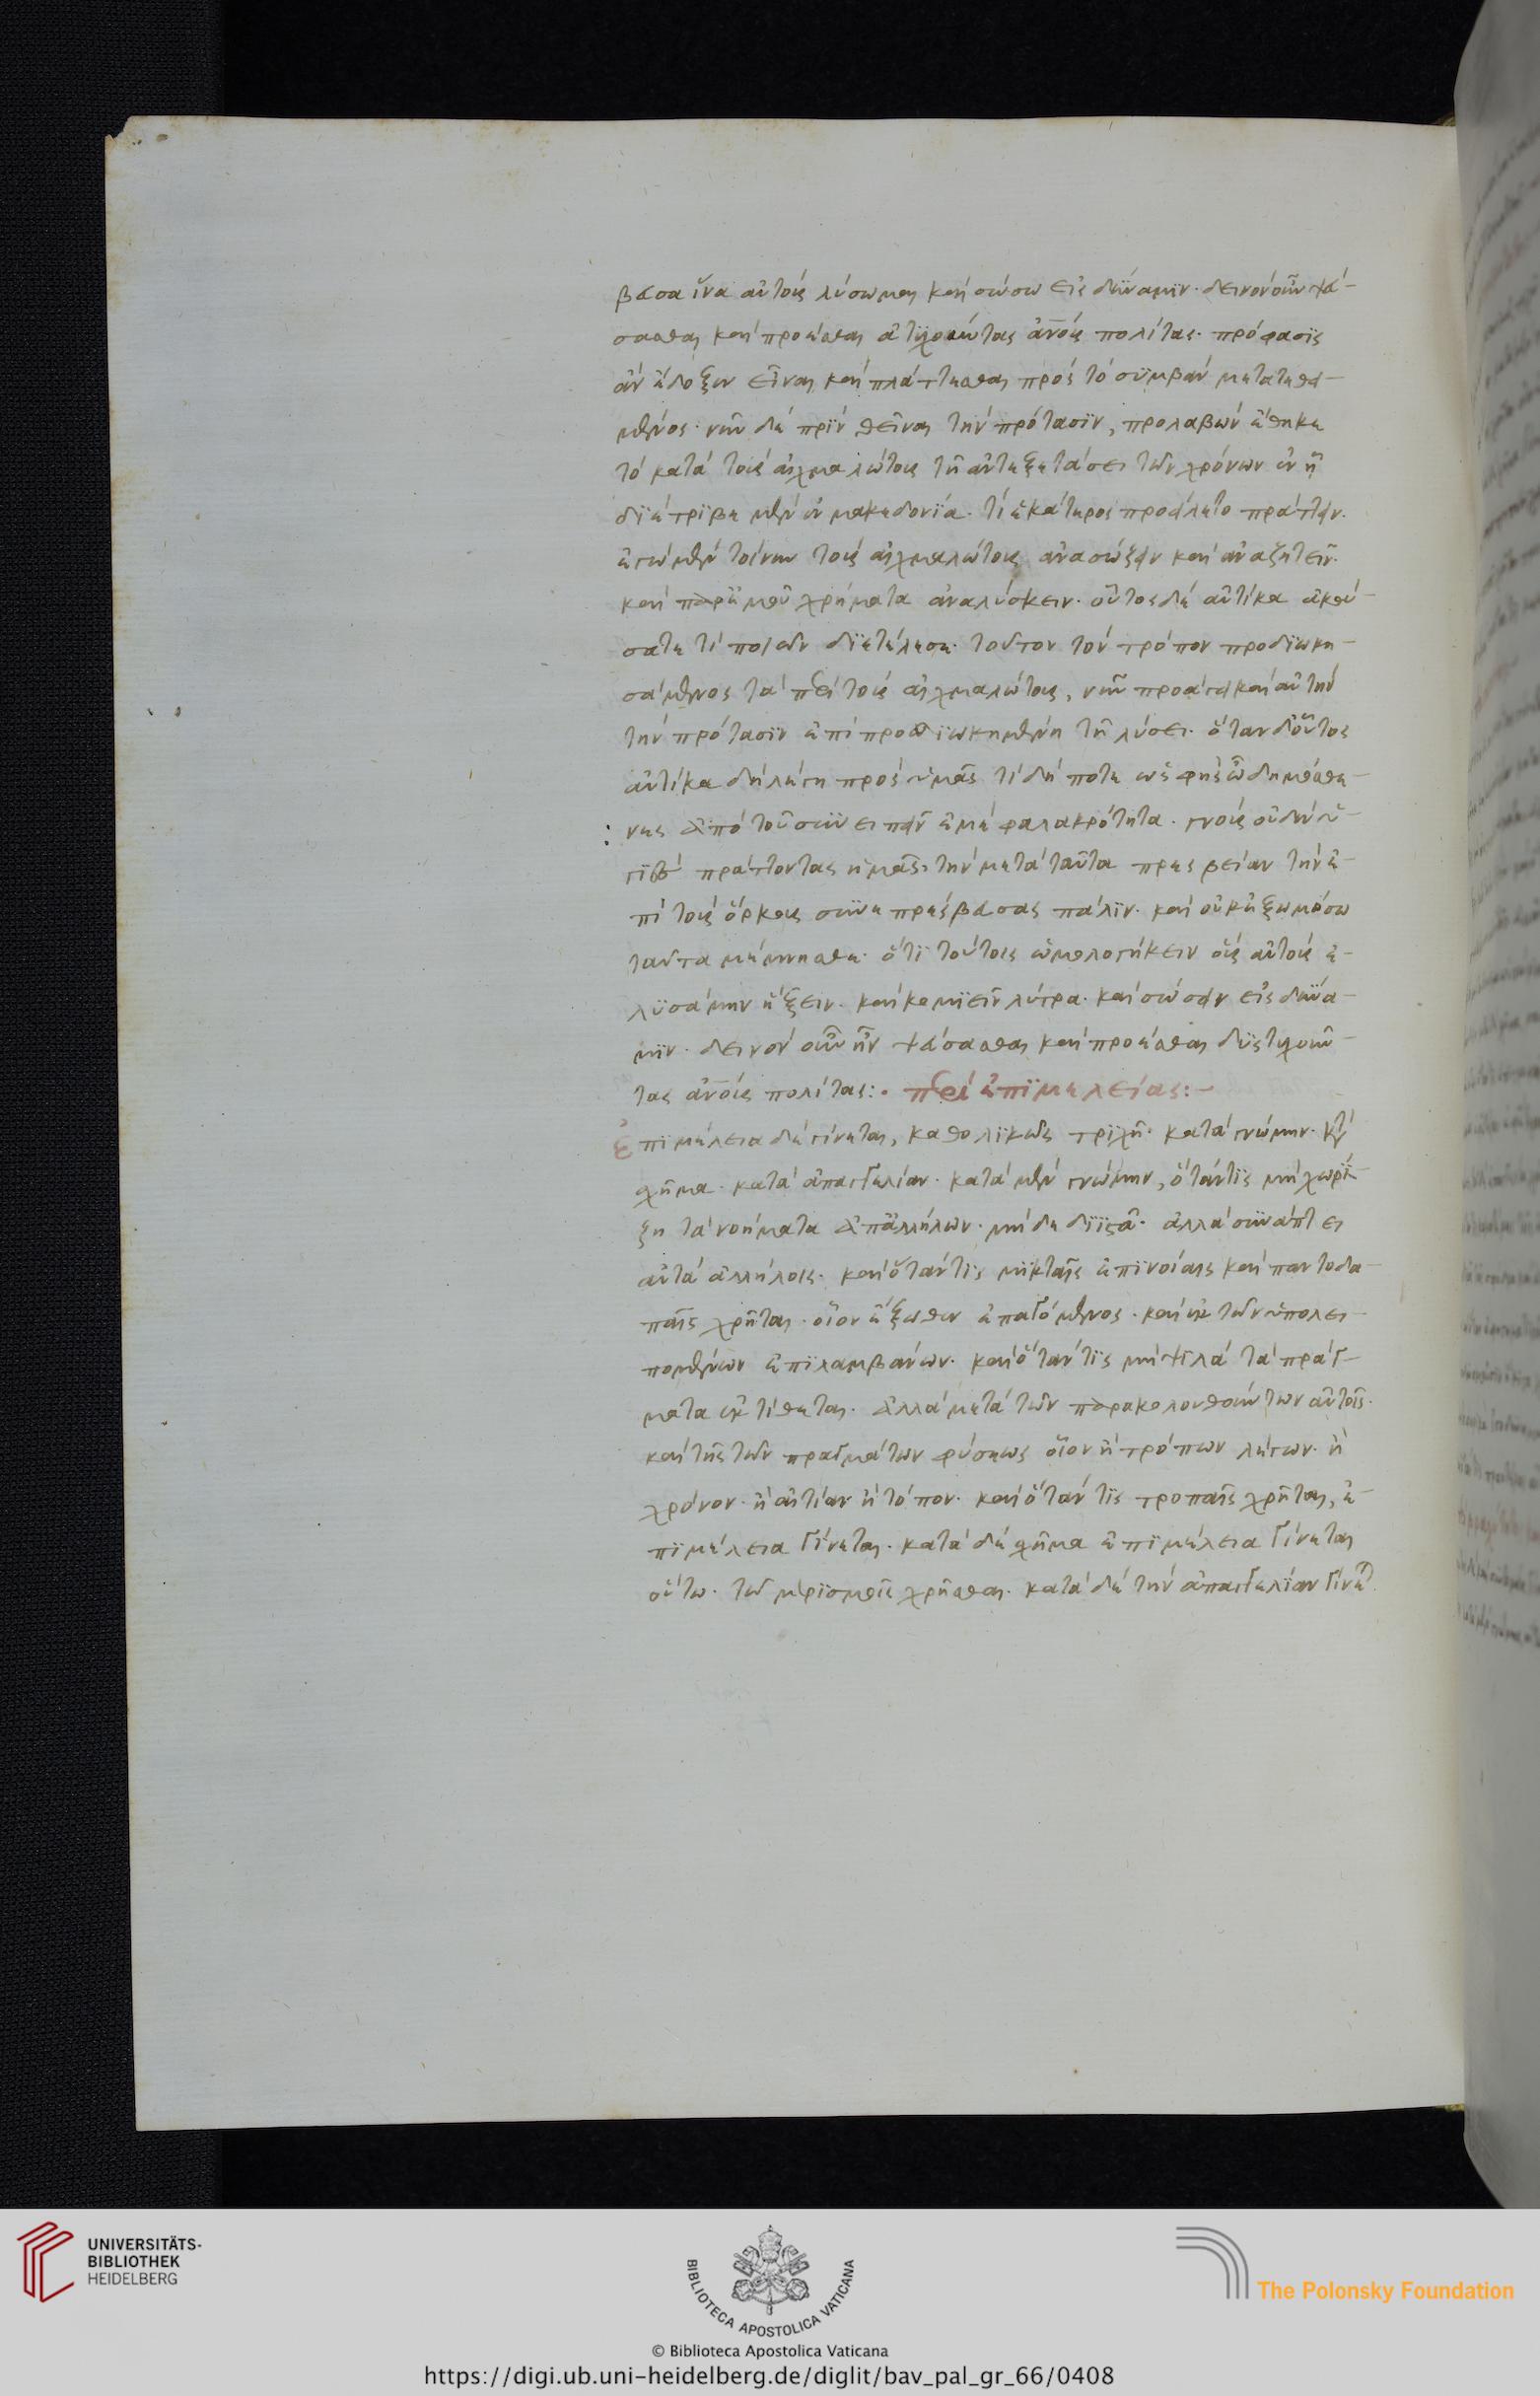 βευσα ἵνα αὐτοὺς λύσωμαι καὶ σώσω εἰς δύναμϊν· δεινὸν οὖν ψεύ-
σασθαι καὶ προέσθαι ἀτυχοῦντας ἄνους πολίτας· πρόφασϊς
ἂν ἔδοξεν εἶναι καὶ πλάττεσθαι πρὸς τὸ συμβὰν μετατιθέ-
μενος· νῦν δὲ πρὶν θεῖναι τὴν πρότασϊν, προλαβὼν ἔθηκε
τὸ κατὰ τοὺς αἰχμαλώτους τῇ ἀντεξετάσει τῶν χρόνων ἐν ᾗ
διέτρϊβε μὲν ἐν μακεδονίᾳ· τί ἑκάτερος προείλετο πράττειν·
ἐγὼ μὲν τοίνυν τοὺς αἰχμαλώτους ἀνασώζειν καὶ ἀναζητεῖν·
καὶ παρ' ἐμοῦ χρήματα ἀναλίσκειν· οὗτος δὲ αὐτίκα ἀκού-
σατε τί ποιῶν διετέλεσε· τοῦτον τὸν τρόπον προδϊωκη-
σάμενος τὰ περὶ τοὺς αἰχμαλώτους, νῦν προάγει καὶ αὐτὴν
τὴν πρότασϊν ἐπὶ προδϊωκημένῃ τῇ λύσει· ὅταν δ' οὗτος
αὐτίκα δὴ λέγῃ πρὸς ὑμᾶς τί δή ποτε ὡς φῂς ὦ δημόσθε-
νες ἀπὸ τοῦ συνειπεῖν ἐμὲ φιλοκράτει γνοὺς οὐδὲν ὑ-
γϊὲς πράττοντας ἡμᾶς, τὴν μετὰ ταῦτα πρεσβείαν τὴν ἐ-
πὶ τοὺς ὅρκους συνεπρέσβευσας πάλϊν· καὶ οὐκ ἐξωμόσω
ταῦτα μέμνησθε· ὅτϊ τούτοις ὡμολογήκειν οὓς αὐτοὺς ἐ-
λυσάμην ἥξειν· καὶ κομϊεῖν λύτρα· καὶ σώσειν εἰς δύνα-
μϊν· δεινὸν οὖν ἦν ψεύσασθαι καὶ προέσθαι δυστυχοῦν-
τας ἄνους πολίτας:· περὶ ἐπϊμελείας:-
ἐπιμέλεια δὲ γίνεται, καθολϊκῶς τριχῆ· κατὰ γνώμην· κατὰ
σχῆμα· κατὰ ἀπαγγελίαν· κατὰ μὲν γνώμην, ὅταν τις μὴ χωρί-
ζῃ τὰ νοήματα ἀπ' ἀλλήλων· μὴ δὲ διϊστᾷ· ἀλλὰ συνάπτει
αὐτὰ ἀλλήλοις· καὶ ὅταν τις μϊκταῖς ἐπϊνοίαις καὶ παντοδα-
παῖς χρῆται· οἷον ἔξωθεν ἐπαγόμενος· καὶ ἐκ τῶν ὑπολει-
πομένων ἐπϊλαμβάνων· καὶ ὅταν τις μὴ ψϊλὰ τὰ πράγ-
ματα ἐκτίθεται· ἀλλὰ μετὰ τῶν παρακολουθούντων αὐτοῖς·
καὶ τῆς τῶν πραγμάτων φύσεως οἷον ἢ τρόπων λέγων· ἢ
χρόνον· ἢ αἰτίαν ἢ τόπον· καὶ ὅταν τις τροπαῖς χρῆται, ἐ-
πιμέλεια γίνεται· κατὰ δὲ σχῆμα ἐπϊμέλεια γίνεται
οὕτω· τῷ μερισμοῖς χρῆσθαι· κατὰ δὲ τὴν ἀπαγγελϊαν γίνεται
UNIVERSITÄTS-
BIBLIOTHEK
HEIDELBERG
BIBLIOTECA APOSTOLICA VATICANA
The Polonsky Foundation
© Biblioteca Apostolica Vaticana
https://digi.ub.uni-heidelberg.de/diglit/bav_pal_gr_66/0408